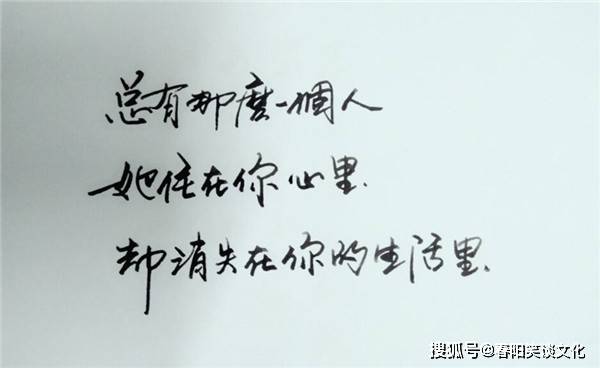 总有那麽一個人
她住在你心里.
却消失在你的生活里.
搜狐号@春阳笑谈文化